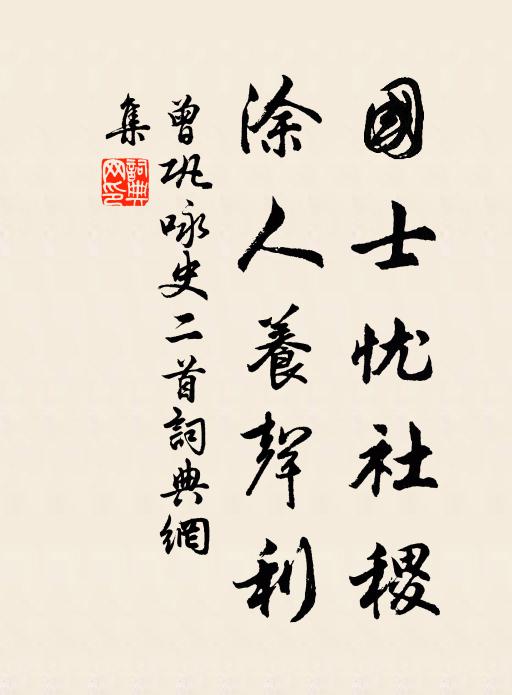 國士忧社稷
涂人養聲利
曾巩咏史二首詞典網
集
詞典网印